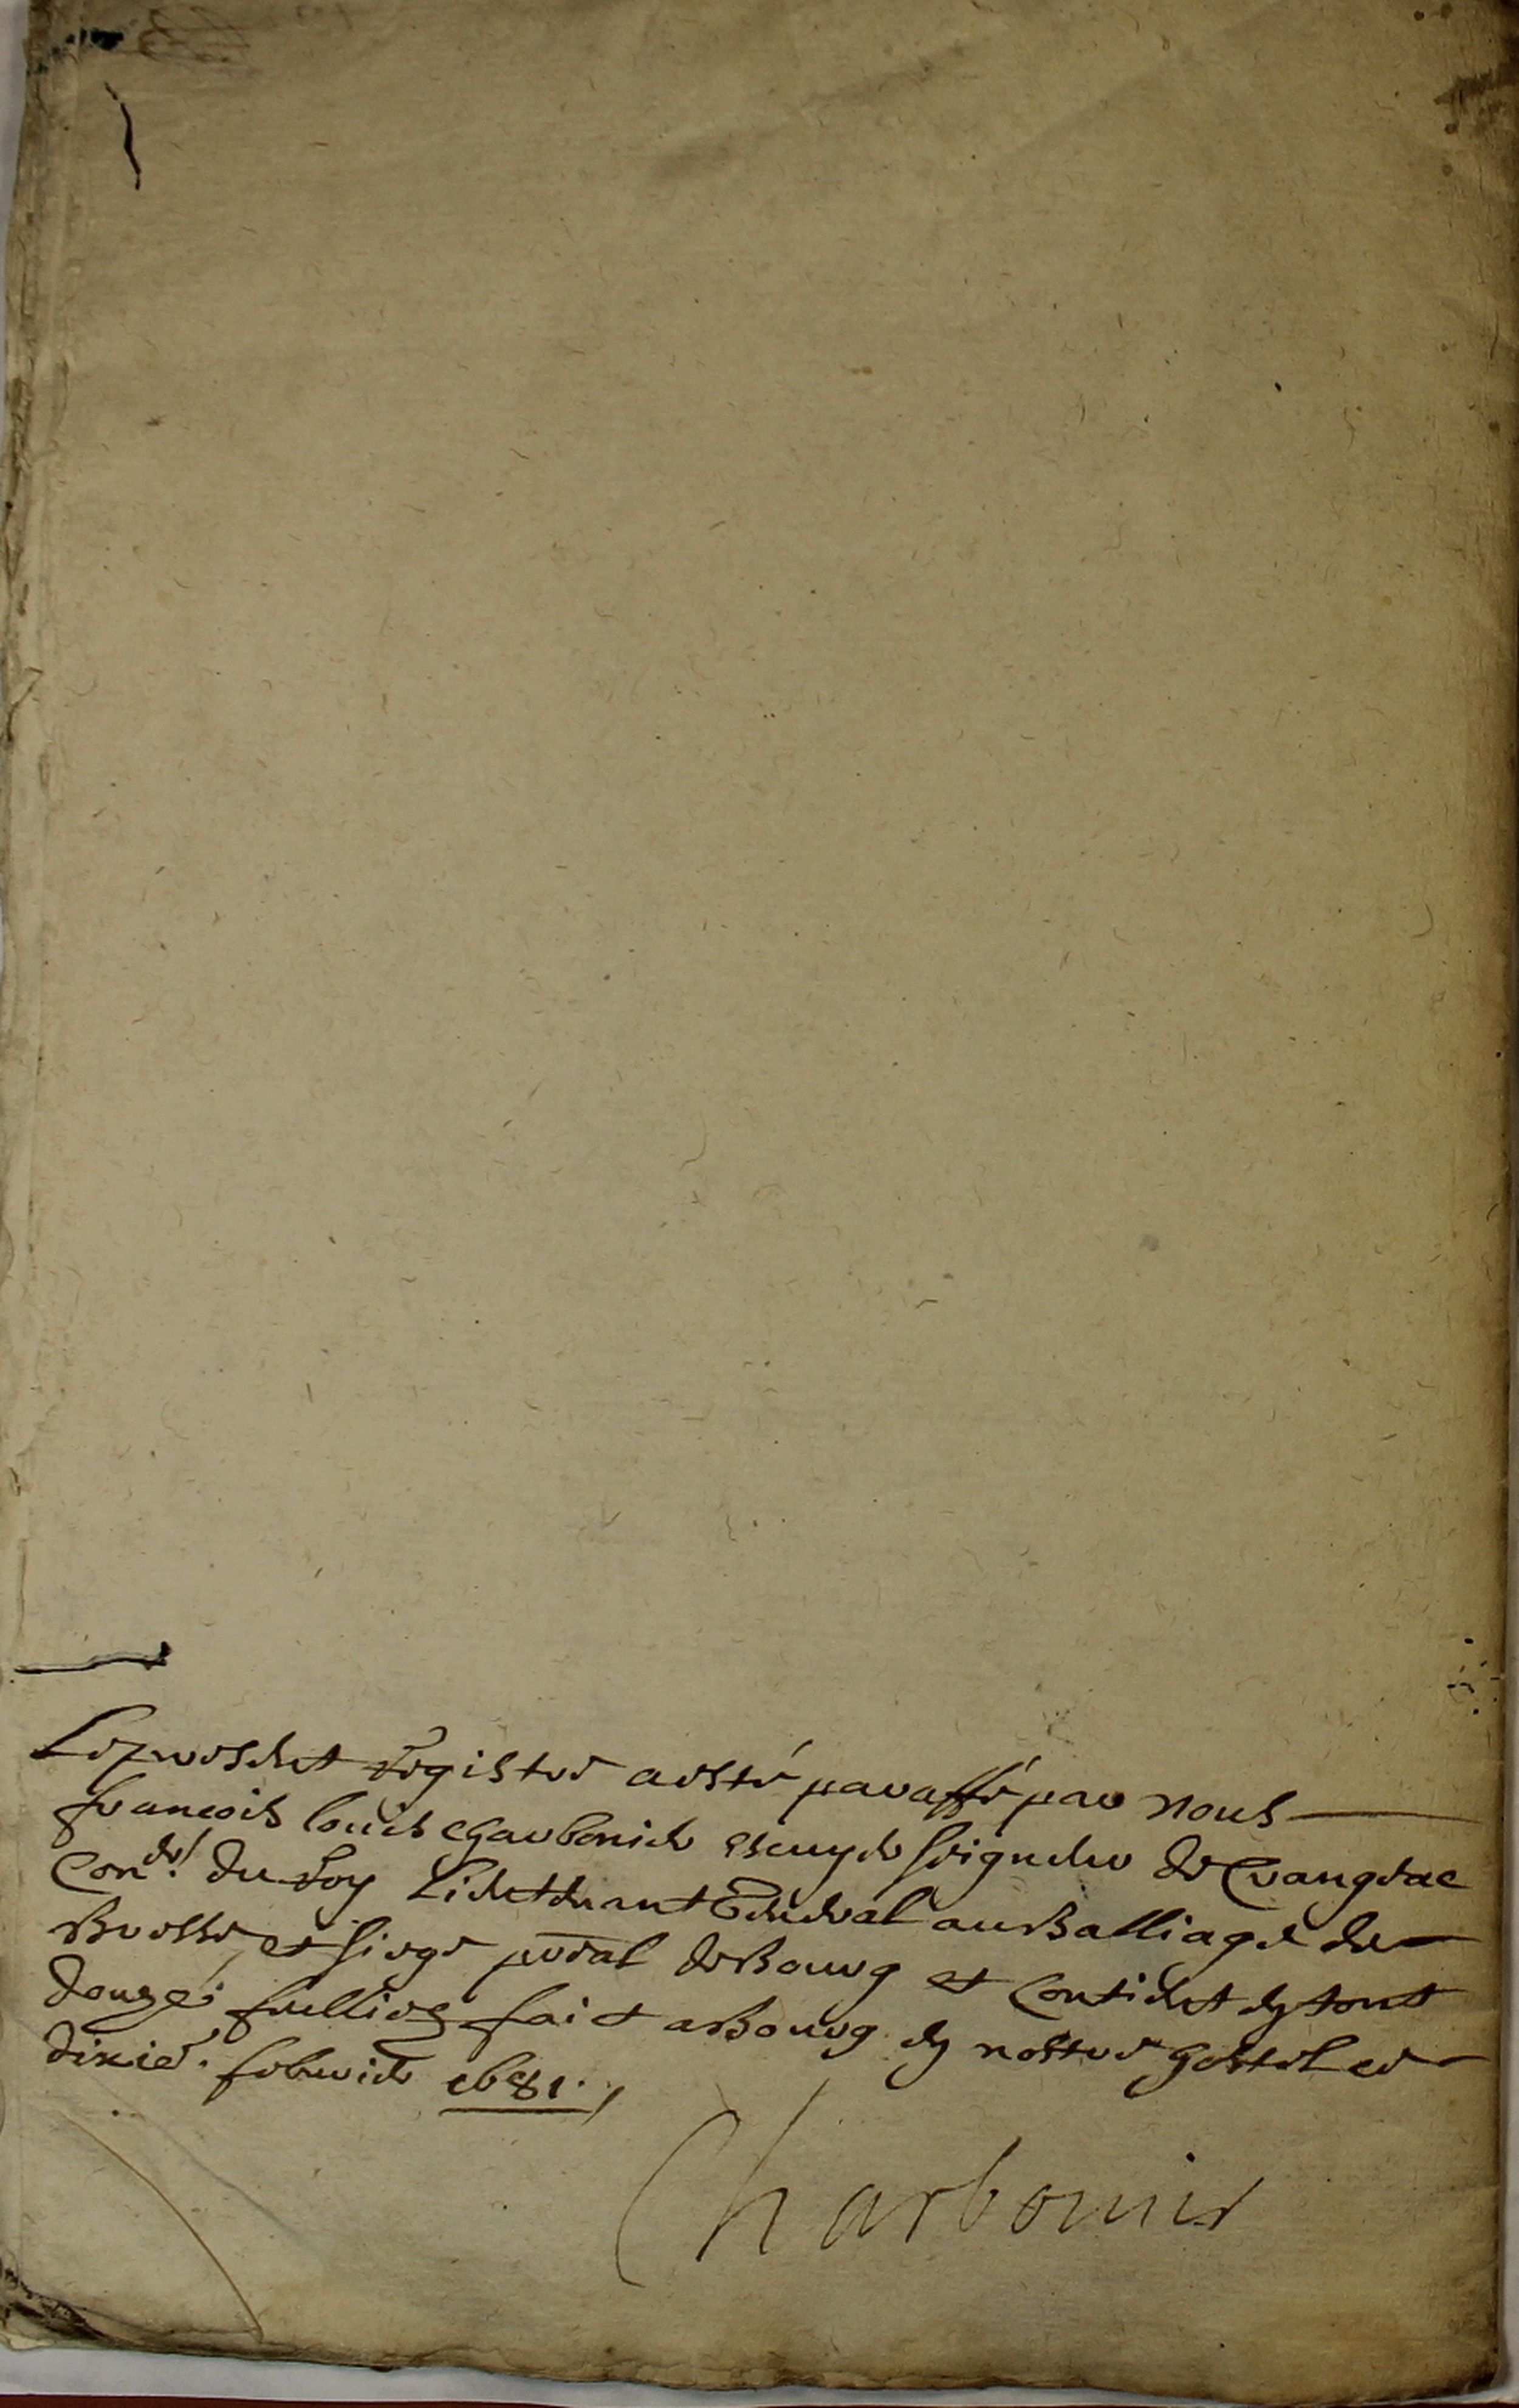 Le present Registre a esté paraffé par nous
francois louis charbonier escuyer seigneur de Crangeac
Con.er du Roy Lieutenant General au Balliage de
Bresse, et siege p̄n̄al de Bourg et Contient en tout
douze feulliez faict a Bourg en nostre hostel ce
dixie. febvrier 1681.
Charbonnier